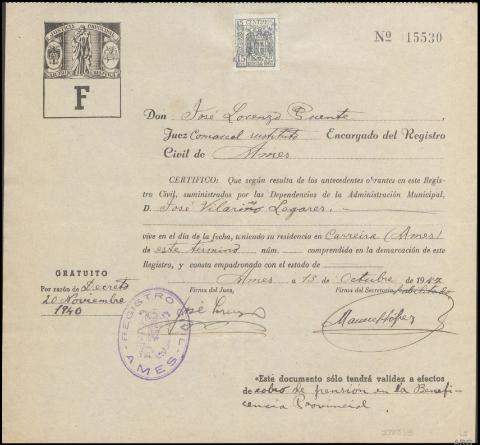 JUSTICIA MUNICIPAL
F
15 CENTIMOS
Nº 15530
Don José Lorenzo Puente
Juez Comarcal sustituto Encargado del Registro
Civil de Ames
CERTIFICO: Que según resulta de los antecedentes obrantes en este Regis-
tro Civil, suministrados por las Dependencias de la Administración Municipal,
D. José Vilariño Lagares.
vive en el día de la fecha, teniendo su residencia en Carreira (Ames)
de este término núm. comprendida en la demarcación de este
Registro, y consta empadronado con el estado de
Ames a 15 de Octubre de 1947
GRATUITO
Por razón de Decreto
20 Noviembre
1940
Firma del Juez,
Firma del Secretario
José Lorenzo
Manuel López
REGISTRO CIVIL
AMES
«Este documento sólo tendrá validez a efectos
de cobro de pensión en la Benefi-
cencia Provincial